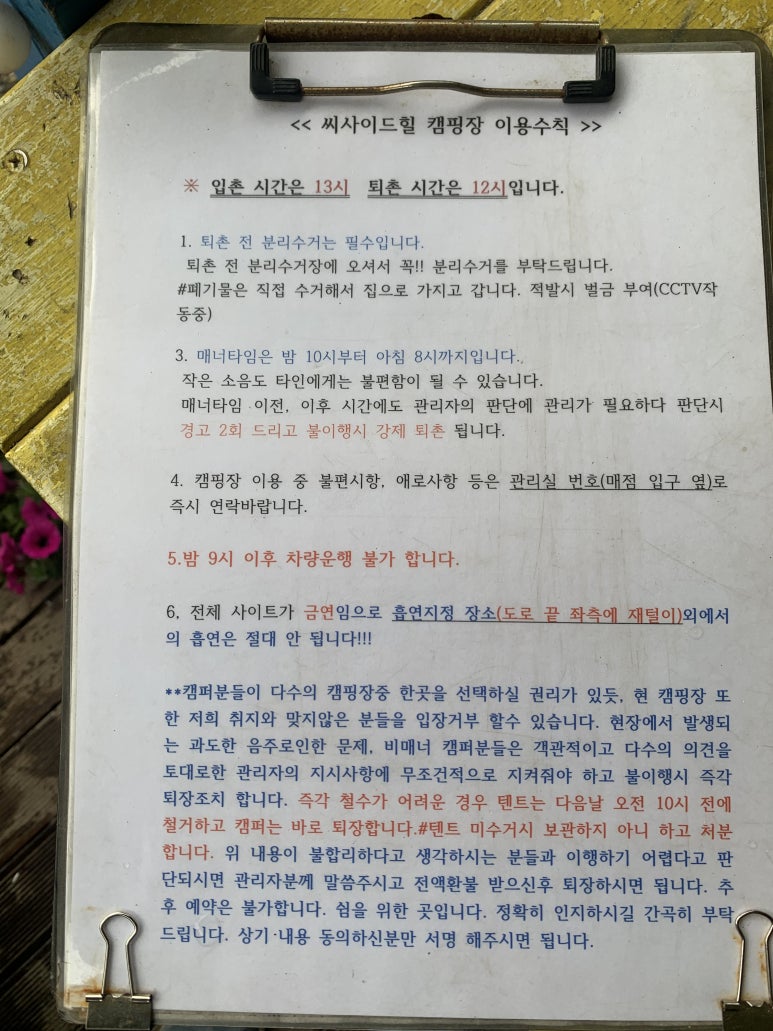 << 씨사이드힐 캠핑장 이용수칙 >>
※ 입촌 시간은 13시 퇴촌 시간은 12시입니다.
1. 퇴촌 전 분리수거는 필수입니다.
퇴촌 전 분리수거장에 오셔서 꼭!! 분리수거를 부탁드립니다.
#폐기물은 직접 수거해서 집으로 가지고 갑니다. 적발시 벌금 부여(CCTV작
동중)
3. 매너타임은 밤 10시부터 아침 8시까지입니다.
작은 소음도 타인에게는 불편함이 될 수 있습니다.
매너타임 이전, 이후 시간에도 관리자의 판단에 관리가 필요하다 판단시
경고 2회 드리고 불이행시 강제 퇴촌 됩니다.
4. 캠핑장 이용 중 불편시항, 애로사항 등은 관리실 번호(매점 입구 옆)로
즉시 연락바랍니다.
5.밤 9시 이후 차량운행 불가 합니다.
6, 전체 사이트가 금연임으로 흡연지정 장소(도로 끝 좌측에 재털이)외에서
의 흡연은 절대 안 됩니다!!!
**캠퍼분들이 다수의 캠핑장중 한곳을 선택하실 권리가 있듯, 현 캠핑장 또
한 저희 취지와 맞지않은 분들을 입장거부 할수 있습니다. 현장에서 발생되
는 과도한 음주로인한 문제, 비매너 캠퍼분들은 객관적이고 다수의 의견을
토대로한 관리자의 지시사항에 무조건적으로 지켜줘야 하고 불이행시 즉각
퇴장조치 합니다. 즉각 철수가 어려운 경우 텐트는 다음날 오전 10시 전에
철거하고 캠퍼는 바로 퇴장합니다.#텐트 미수거시 보관하지 아니 하고 처분
합니다. 위 내용이 불합리하다고 생각하시는 분들과 이행하기 어렵다고 판
단되시면 관리자분께 말씀주시고 전액환불 받으신후 퇴장하시면 됩니다. 추
후 예약은 불가합니다. 쉼을 위한 곳입니다. 정확히 인지하시길 간곡히 부탁
드립니다. 상기 내용 동의하신분만 서명 해주시면 됩니다.